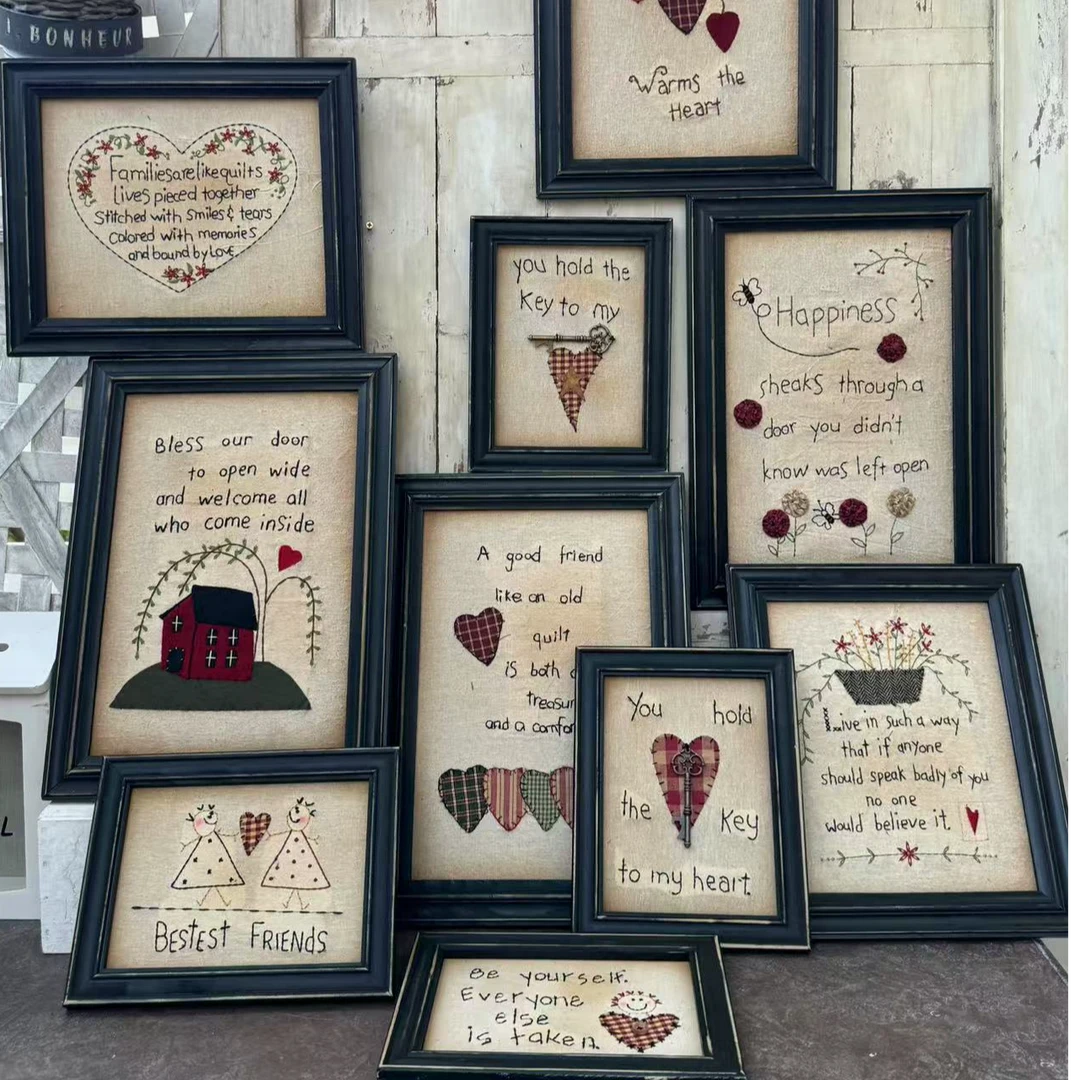 BONHEUR
Warms the
Heart
Families are like quilts
Lives pieced together
Stitched with smiles & tears
Colored with memories
and bound by Love
you hold the
Key to my
Happiness
sneaks through a
door you didn't
know was left open
Bless our door
to open wide
and welcome all
who come inside
A good friend
like an old
quilt
is both
treasur
and a comfor
You hold
the Key
to my heart.
Live in such a way
that if anyone
should speak badly of you
no one
would believe it.
BESTEST FRIENDS
Be yourself.
Everyone
else
is taken.
L